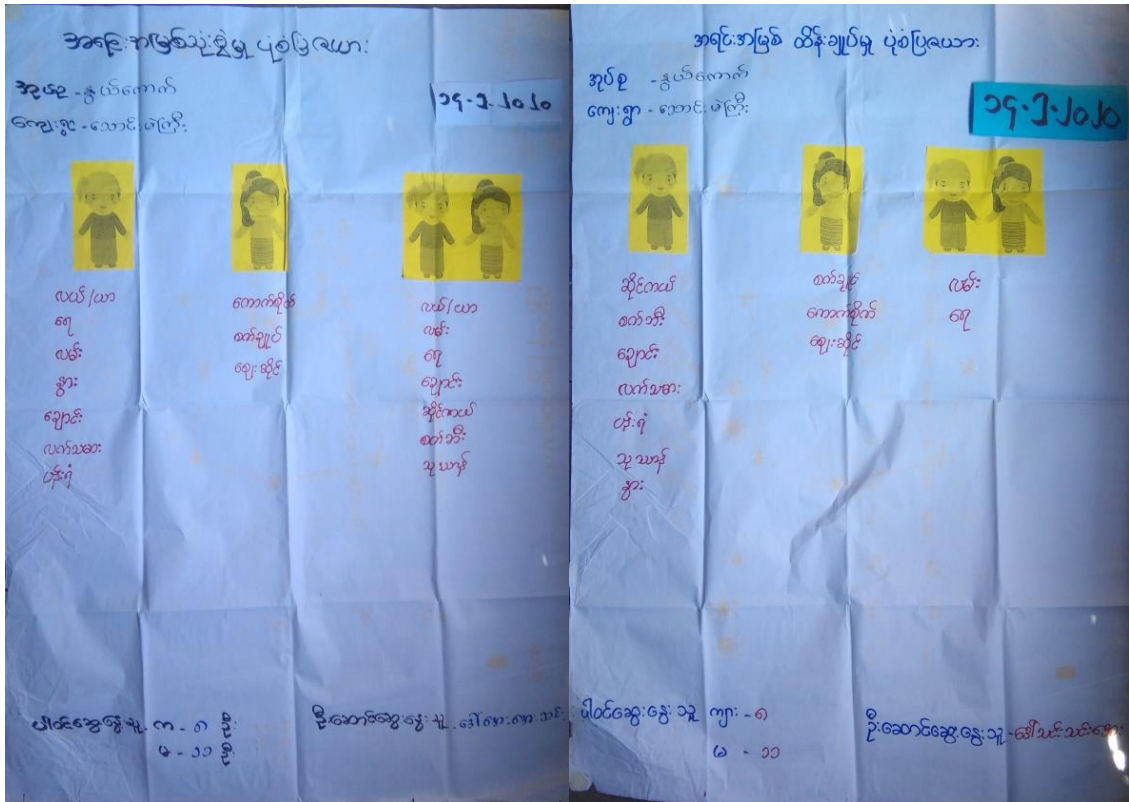 အရင်းအမြစ်သုံးစွဲမှု ပုံစံပြဇယား
အုပ်စု - နွယ်ကောက်
ကျေးရွာ - သောင်းဖဲကြီး
၁၄-၃-၂၀၂၀
လယ်/ယာ
ရေ
လမ်း
နွား
ချောင်း
လက်သမား
ပန်းရံ
ကောက်စိုက်
စက်ချုပ်
ဈေးဆိုင်
လယ်/ယာ
လမ်း
ရေ
ချောင်း
ဆိုင်ကယ်
စက်ဘီး
သုသာန်
ပါဝင်ဆွေးနွေးသူ က - ၈ ဦး
မ - ၁၁ ဦး
ဦးဆောင်ဆွေးနွေးသူ
အရင်းအမြစ် ထိန်းချုပ်မှု ပုံစံပြဇယား
အုပ်စု - နွယ်ကောက်
ကျေးရွာ - သောင်းဖဲကြီး
၁၄-၃-၂၀၂၀
ဆိုင်ကယ်
စက်ဘီး
ချောင်း
လက်သမား
ပန်းရံ
သုသာန်
နွား
စက်ချုပ်
ကောက်စိုက်
ဈေးဆိုင်
လမ်း
ရေ
ပါဝင်ဆွေးနွေးသူ ကျား - ၈
မ - ၁၁
ဦးဆောင်ဆွေးနွေးသူ - ဒေါ်သင်းသင်း